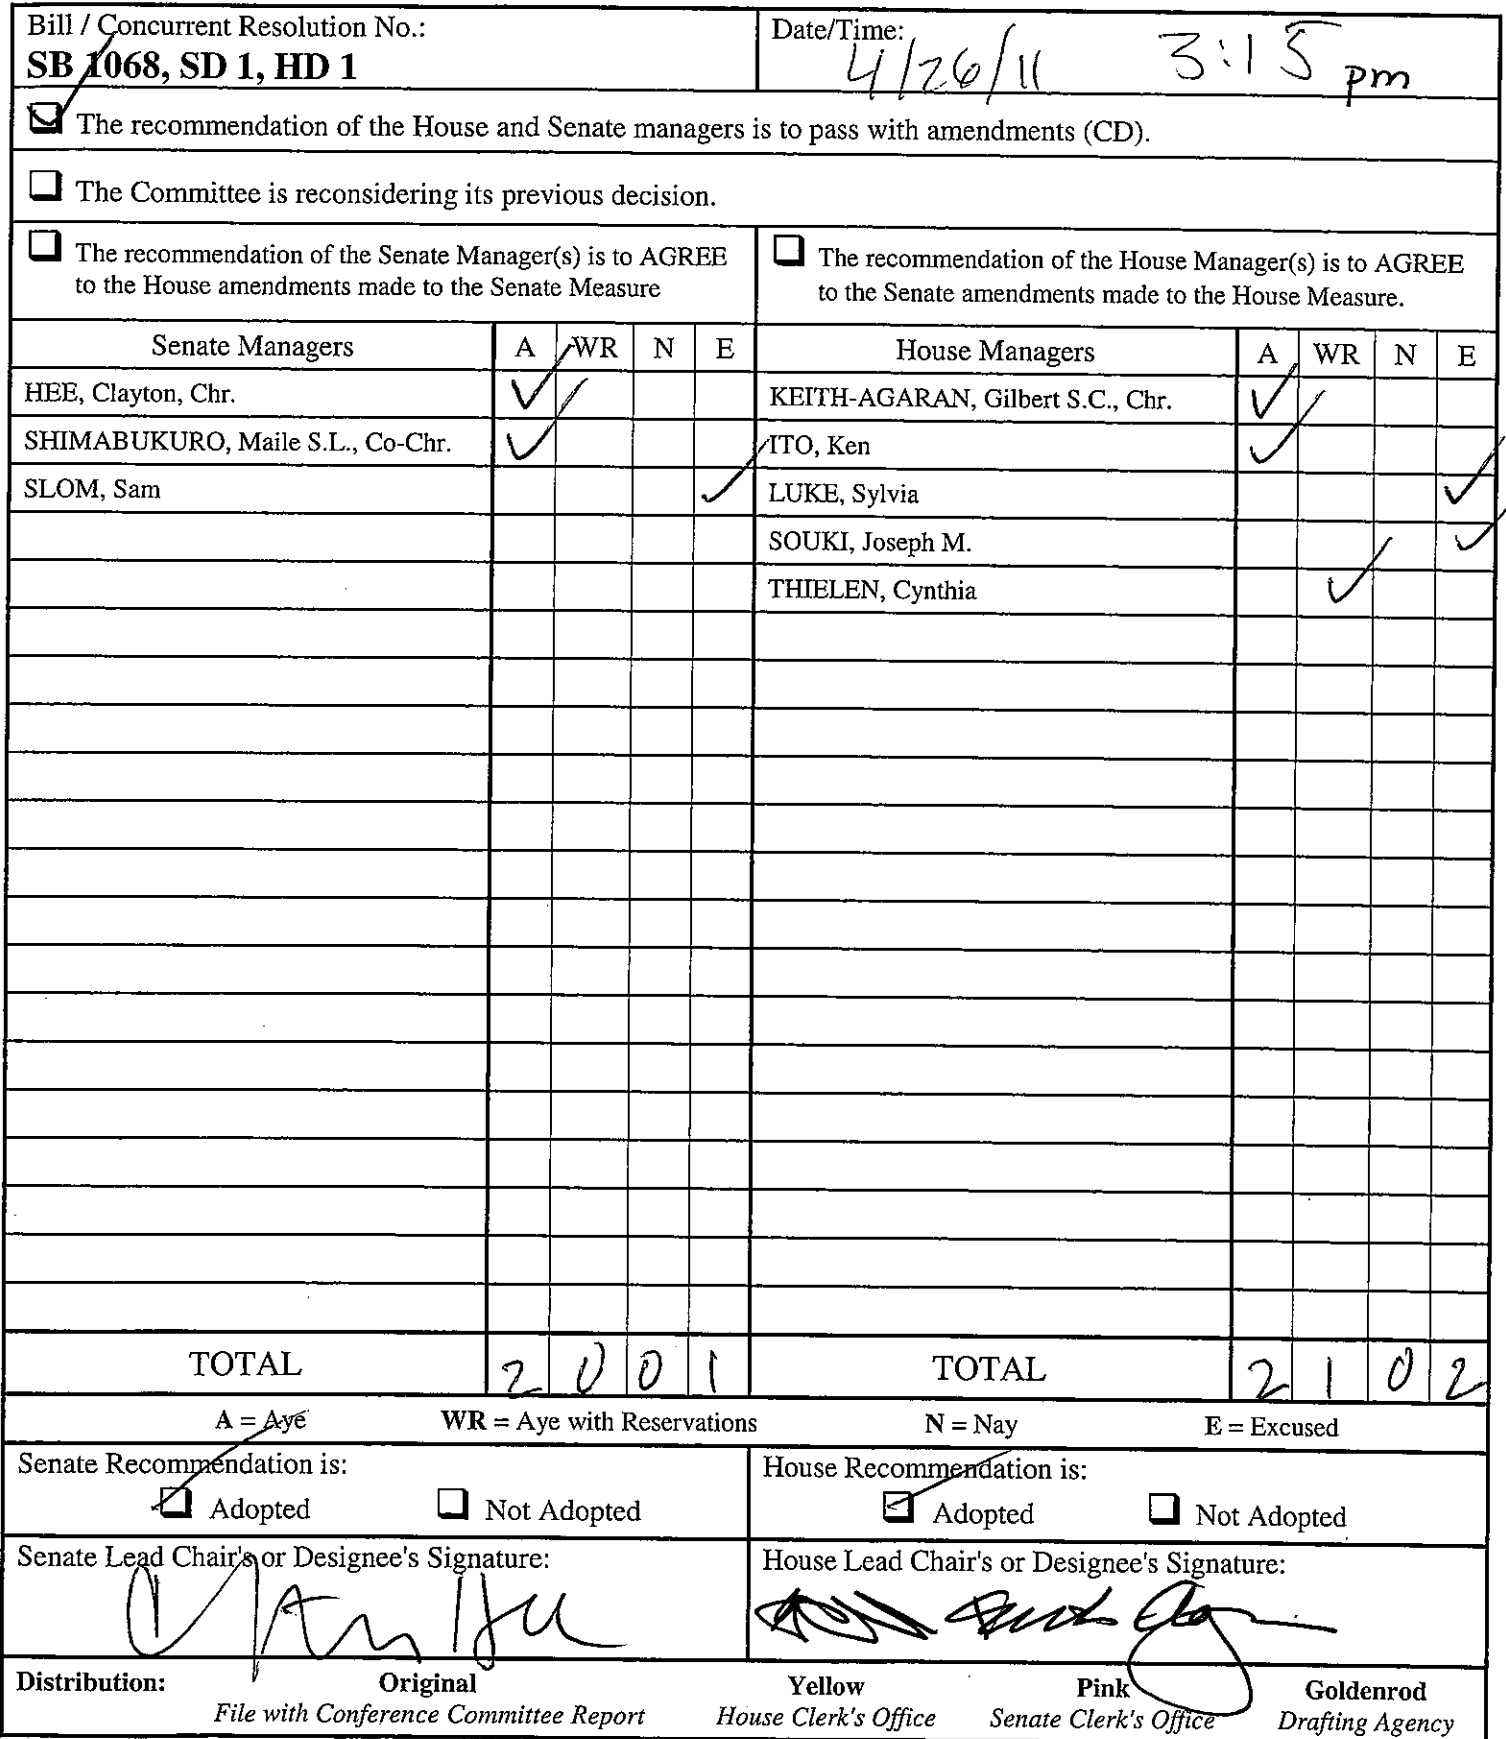 Bill / Concurrent Resolution No.:
SB 1068, SD 1, HD 1
Date/Time:
4/26/11 3:15 pm
The recommendation of the House and Senate managers is to pass with amendments (CD).
The Committee is reconsidering its previous decision.
The recommendation of the Senate Manager(s) is to AGREE
to the House amendments made to the Senate Measure
The recommendation of the House Manager(s) is to AGREE
to the Senate amendments made to the House Measure.
Senate Managers A WR N E
HEE, Clayton, Chr.
SHIMABUKURO, Maile S.L., Co-Chr.
SLOM, Sam
House Managers A WR N E
KEITH-AGARAN, Gilbert S.C., Chr.
ITO, Ken
LUKE, Sylvia
SOUKI, Joseph M.
THIELEN, Cynthia
TOTAL 2 0 0 1
TOTAL 2 1 0 2
A = Aye WR = Aye with Reservations N = Nay E = Excused
Senate Recommendation is:
Adopted Not Adopted
House Recommendation is:
Adopted Not Adopted
Senate Lead Chair's or Designee's Signature:
House Lead Chair's or Designee's Signature:
Distribution: Original Yellow Pink Goldenrod
File with Conference Committee Report House Clerk's Office Senate Clerk's Office Drafting Agency